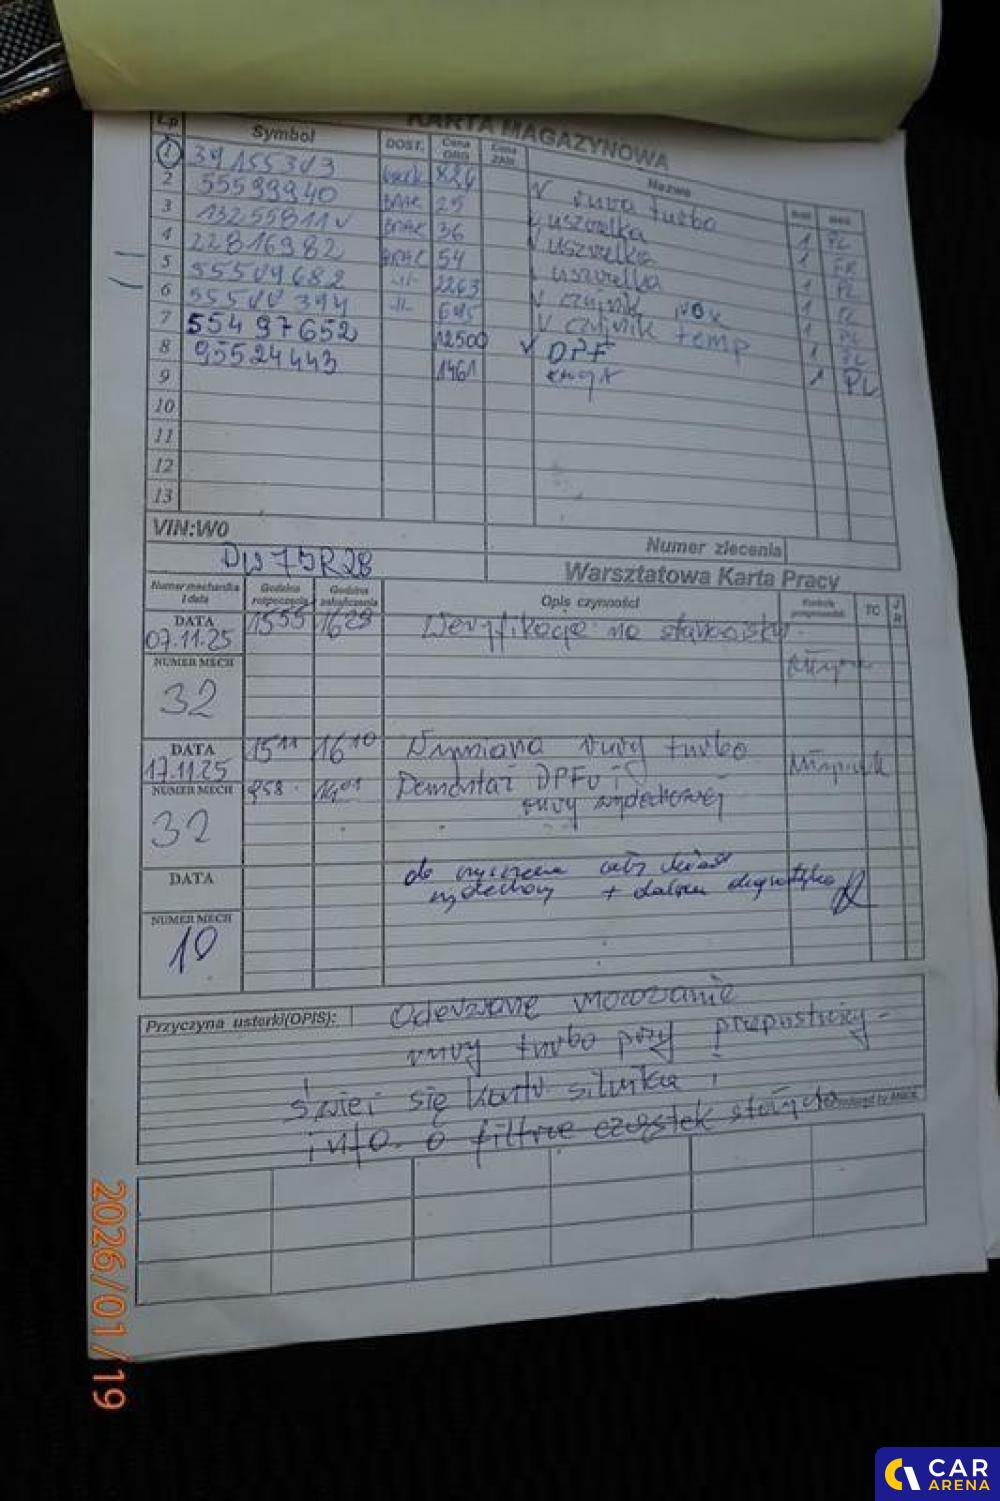 KARTA MAGAZYNOWA
Lp Symbol DOST. Cena Cena Nazwa
1 39155303 826 V rura turbo 1
2 55599940 BRAK 25 V uszczelka 1
3 13255811 BRAK 36 V uszczelka 1
4 22816982 BRAK 54 uszczelka 1 PL
5 55504682 -//- 2263 V czujnik NOx 1 PL
6 555 394 -//- 645 V czujnik temp 1 PL
7 55497652 12500 V DPF 1 PL
8 95524443 1461
9
10
11
12
13
VIN:W0
Numer zlecenia
Warsztatowa Karta Pracy
Numer mechanika i data Godzina rozpoczęcia Godzina zakończenia Opis czynności TC
DATA
07.11.25 15 55 16 29 Weryfikacja na stanowisku.
NUMER MECH
32
DATA
17.11.25 15 11 16 10 Wymiana rury turbo
NUMER MECH 858 Demontaż DPFu i
32 rury wydechowej
DATA
wydechowy + dalsza diagnostyka
NUMER MECH
10
Przyczyna usterki(OPIS): Oderwane mocowanie
rury turbo przy przepustnicy -
świeci się kontr. silnika i
info o filtrze cząstek stałych
2026/01/19
CAR
ARENA